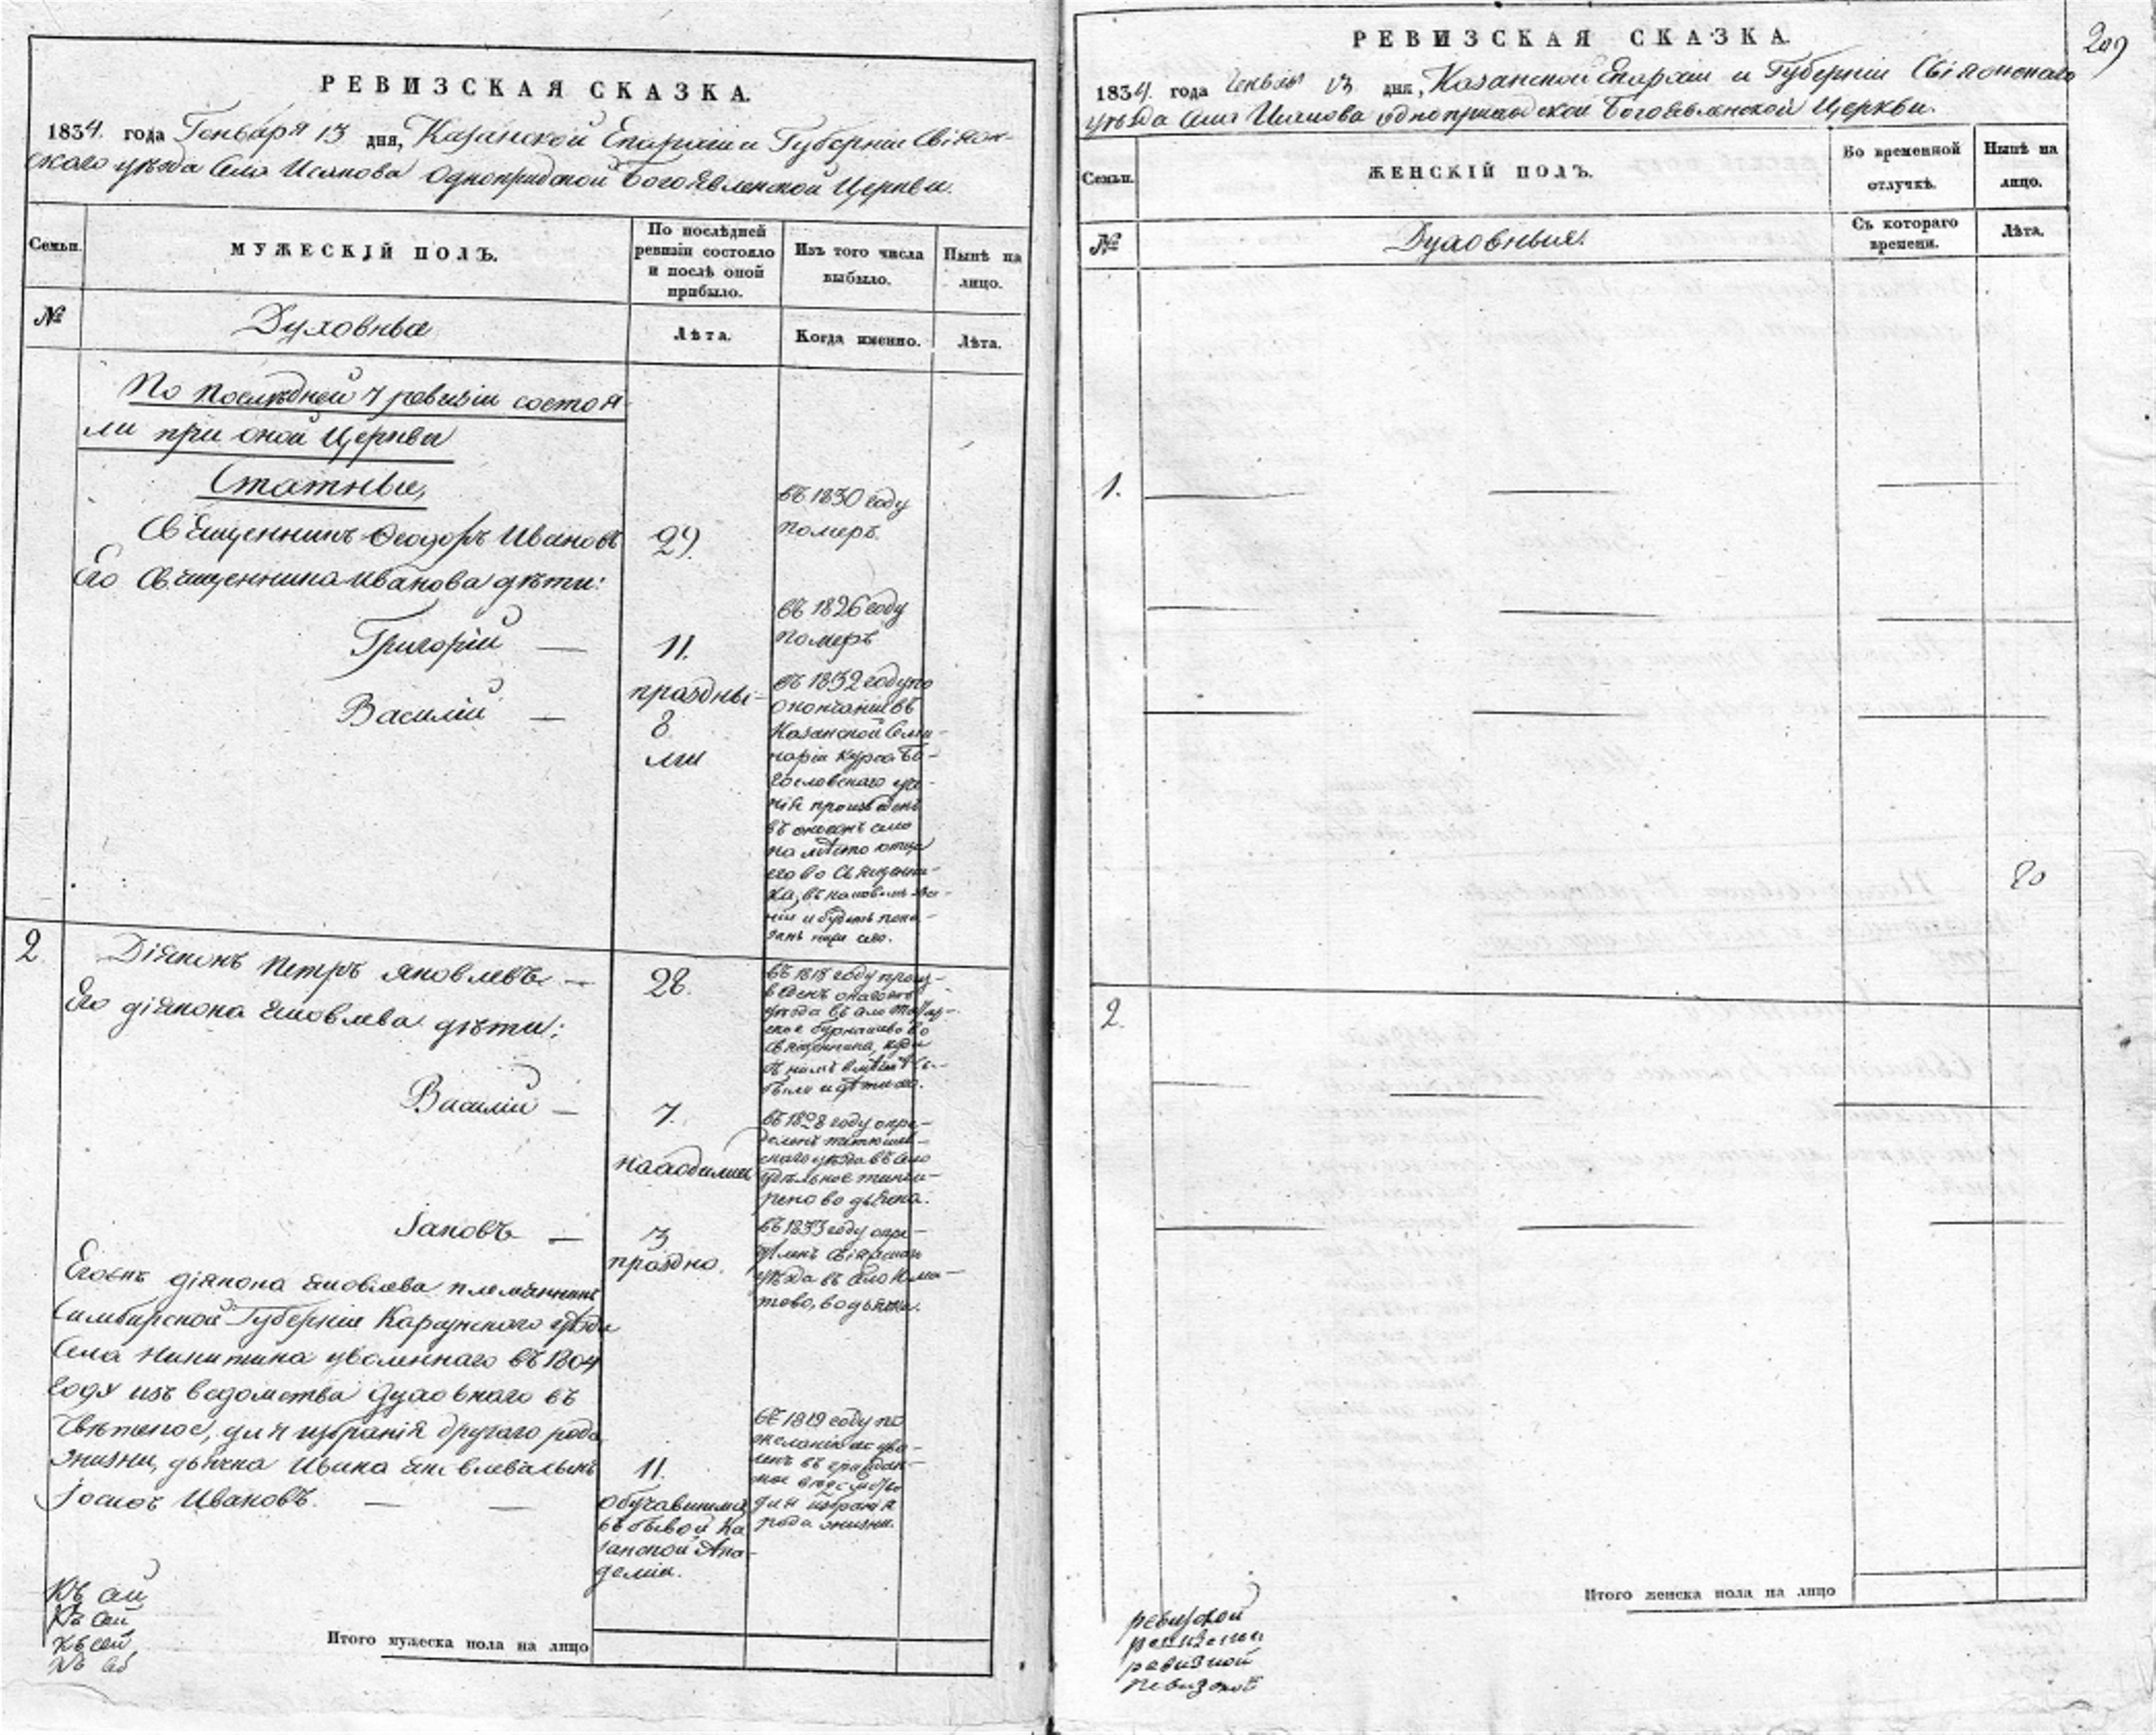 РЕВИЗСКАЯ СКАЗКА.
1834. года Генваря 13 дня, Казанской Епархіи и Губерніи Свіяж-
ского уѣзда Села Исакова одноприходской Богоявленской Церкви.
Семьи.
МУЖЕСКІЙ ПОЛЪ.
По послѣдней
ревизіи состояло
и послѣ оной
прибыло.
Изъ того числа
выбыло.
Нынѣ на
лицо.
№
Духовныя
Лѣта.
Когда именно.
Лѣта.
По послѣдней 7 ревизіи состоя
ли при оной Церкви
Статныи,
Священникъ Феодоръ Ивановъ
29.
въ 1830 году
померъ.
Его Священника Иванова дѣти:
Григорій —
11.
въ 1826 году
померъ
Василій —
праздны-
8
ми
въ 1832 году по
окончаніи въ
Казанской Семи-
наріи курса Бо-
гословскаго уче-
нія произведенъ
село
на мѣсто отца
его во Священни-
ка, въ
ніи и будетъ пока-
занъ
2
Діяконъ Петръ Яковлевъ —
28.
въ 1818 году произ-
веденъ
уѣзда въ село
Бурнашево во
священника, куда
съ нимъ вмѣстѣ
были и дѣти его.
Его діякона Яковлева дѣти:
Василій —
7.
находились
въ 1828 году опре-
деленъ тетюшев-
скаго уѣзда въ село
во дьякона.
Іаковъ —
3
праздно.
въ 1833 году опре-
дѣленъ свіяжскаго
уѣзда въ село
во дьячки.
Егожъ діякона Яковлева племянникъ
Симбирской Губерніи Карсунского уѣзда
Села Никитина уволеннаго въ 1804
году изъ ведомства духовнаго въ
свѣтское, для избранія другаго рода
жизни, дьячка Ивана Яковлева сынъ
Іосифъ Ивановъ. — —
11.
обучавшимся
въ бывой Ка
занской Ака-
деміи.
въ 1819 году по
желанію его уво-
ленъ въ граждан-
ское
для избранія
рода жизни.
Къ сей
Къ сей
Къ сей
Къ се
Итого мужеска пола на лицо
209
РЕВИЗСКАЯ СКАЗКА.
1834. года Генваря 13 дня, Казанской Епархіи и Губерніи Свіяжского
уѣзда Села Исакова одноприходской Богоявленской Церкви.
Семьи.
ЖЕНСКІЙ ПОЛЪ.
Во временной
отлучкѣ.
Нынѣ на
лицо.
№
Духовныя.
Съ котораго
времени.
Лѣта.
1.
20
2.
Итого женска пола на лицо
ревизской
ревизской
ревизкой
ревизской